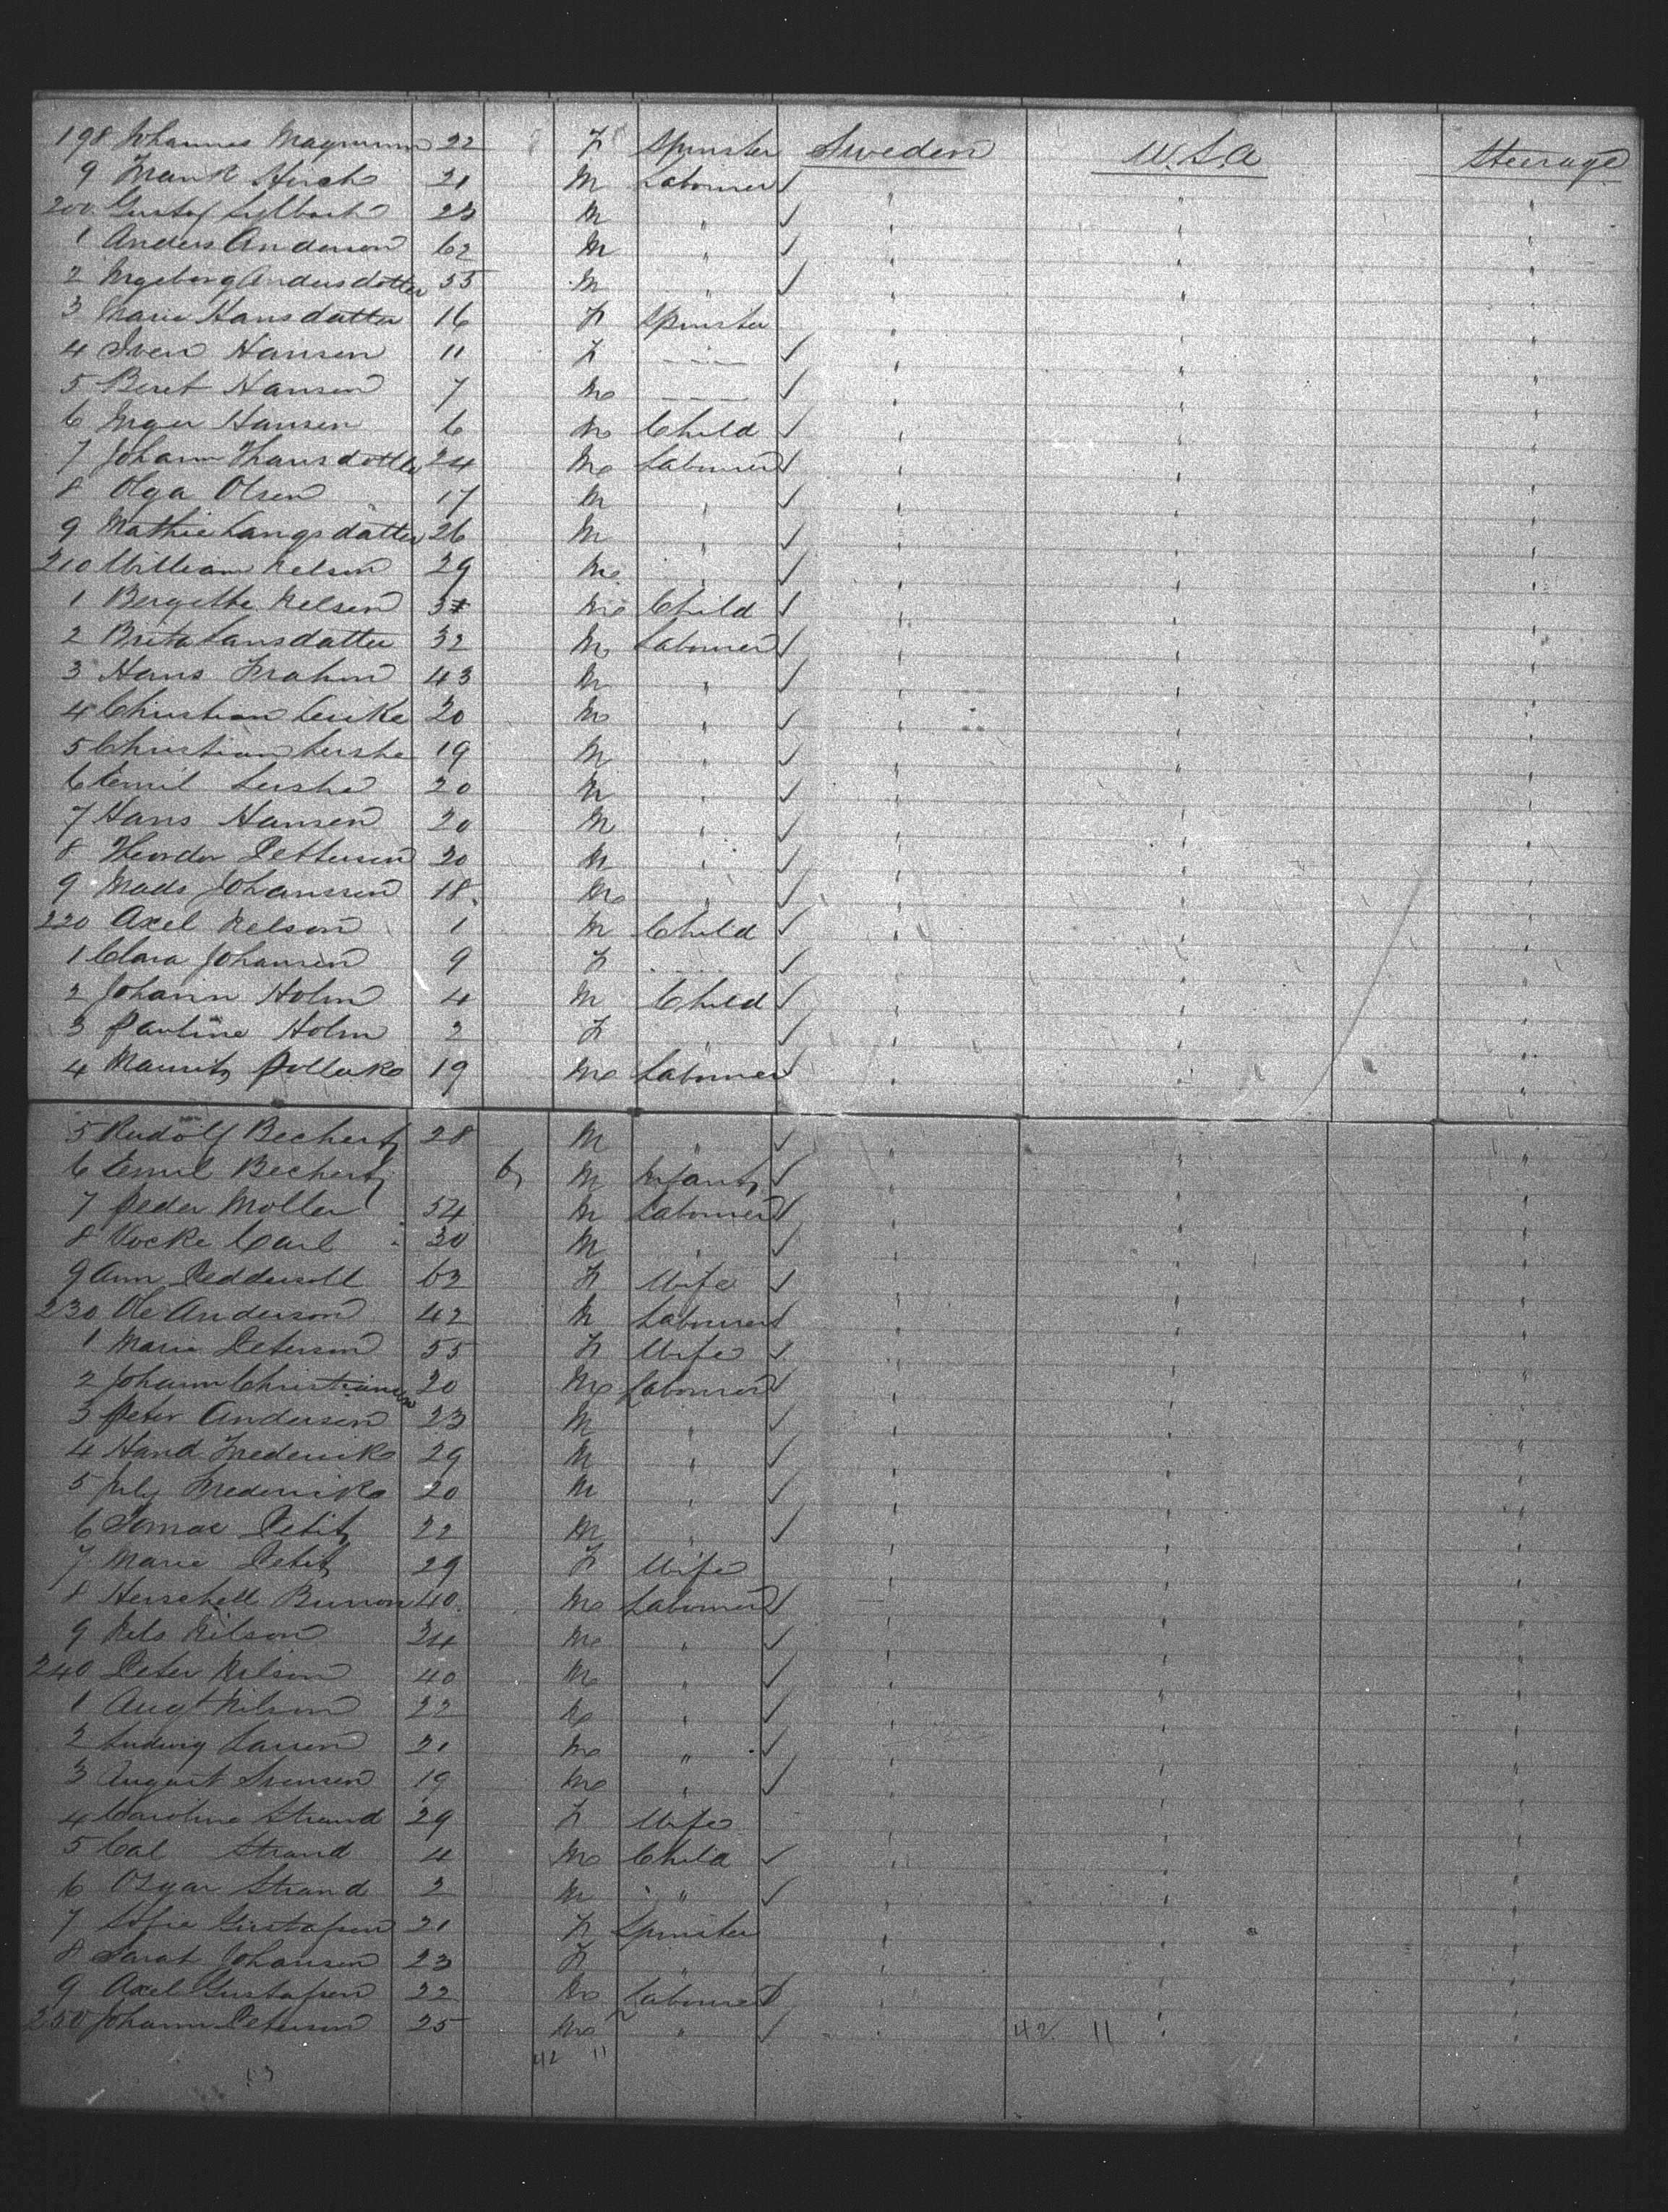 198 Johannes Magnusson 22 F Spinster Sweden U.S.A Steerage
9 Frank Hirsch 21 M Labourer ✓ " " "
200 Gustaf 23 M " ✓ " " "
1 Anders Anderson 62 M " ✓ " " "
2 Ingeborg Andersdotter 55 M " ✓ " " "
3 Marie Hansdatter 16 F Spinster " " "
4 Sven Hansen 11 F — ✓ " " "
5 Beret Hansen 7 M — ✓ " " "
6 Inger Hansen 6 M Child ✓ " " "
7 Johann Thansdotter 24 M Labourer ✓ " " "
8 Olga Olsen 17 M " ✓ " " "
9 Mathie Langsdatter 26 M " ✓ " " "
210 William Nelson 29 M " ✓ " " "
1 Bergethe Nelsen 3 M Child ✓ " " "
2 Brita Larsdatter 32 M Labourer ✓ " " "
3 Hans Frahm 43 M " ✓ " " "
4 Christian 20 M " ✓ " " "
5 Christian Lershe 19 M " ✓ " " "
6 Emil Lershe 20 M " ✓ " " "
7 Hans Hansen 20 M " ✓ " " "
8 Theodor Pettersen 20 M " ✓ " " "
9 Mads Johanssen 18 M " ✓ " " "
220 Axel Nelson 1 M Child ✓ " " "
1 Clara Johansen 9 F ✓ " " "
2 Johann Holm 4 M Child ✓ " " "
3 Pauline Holm 2 F " ✓ " " "
4 Mauritz Pollak 19 M Labourer ✓ " " "
5 Rudolf Bechert 28 M " ✓ " " "
6 Emil Bechert 6 M Infant ✓ " " "
7 Peder Moller 54 M Labourer ✓ " " "
8 Vocke Carl 30 M " ✓ " " "
9 Ann 62 F Wife ✓ " " "
230 Ole Anderson 42 M Labourer ✓ " " "
1 Marie Peterson 55 F Wife ✓ " " "
2 Johann Christiansen 20 M Labourer ✓ " " "
3 Peter Andersen 23 M " ✓ " " "
4 Hand Frederick 29 M " ✓ " " "
5 July Frederick 20 M " ✓ " " "
6 Petit 22 M " ✓ " " "
7 Marie Petit 29 F Wife " " "
8 Herschell Burron 40 M Labourer ✓ " " "
9 Nels Nilson 24 M " ✓ " " "
240 Peter Nilson 40 M " ✓ " " "
1 Augt Nilson 22 M " ✓ " " "
2 Ludwig Larsen 21 M " ✓ " " "
3 August Svensen 19 M " ✓ " " "
4 Caroline Strand 29 F Wife " " "
5 Cal Strand 4 M Child ✓ " " "
6 Osgar Strand 2 M " ✓ " " "
7 Sofie Gustafsen 21 F Spinster " " "
8 Sarah Johansen 23 F " " " "
9 Axel Gustafsen 22 M Labourer ✓ " " "
250 Johann Peterson 25 M " ✓ 42 11 " "
42 11